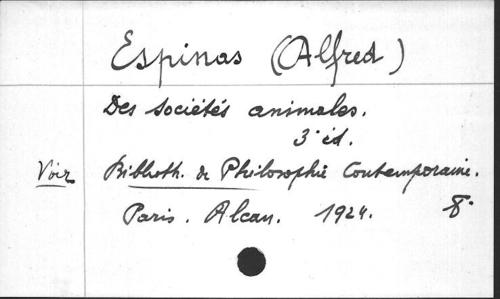 Espinas (Alfred)
Des sociétés animales.
3e éd.
Voir Biblioth. de Philosophie Contemporaine.
Paris. Alcan. 1924. 8°